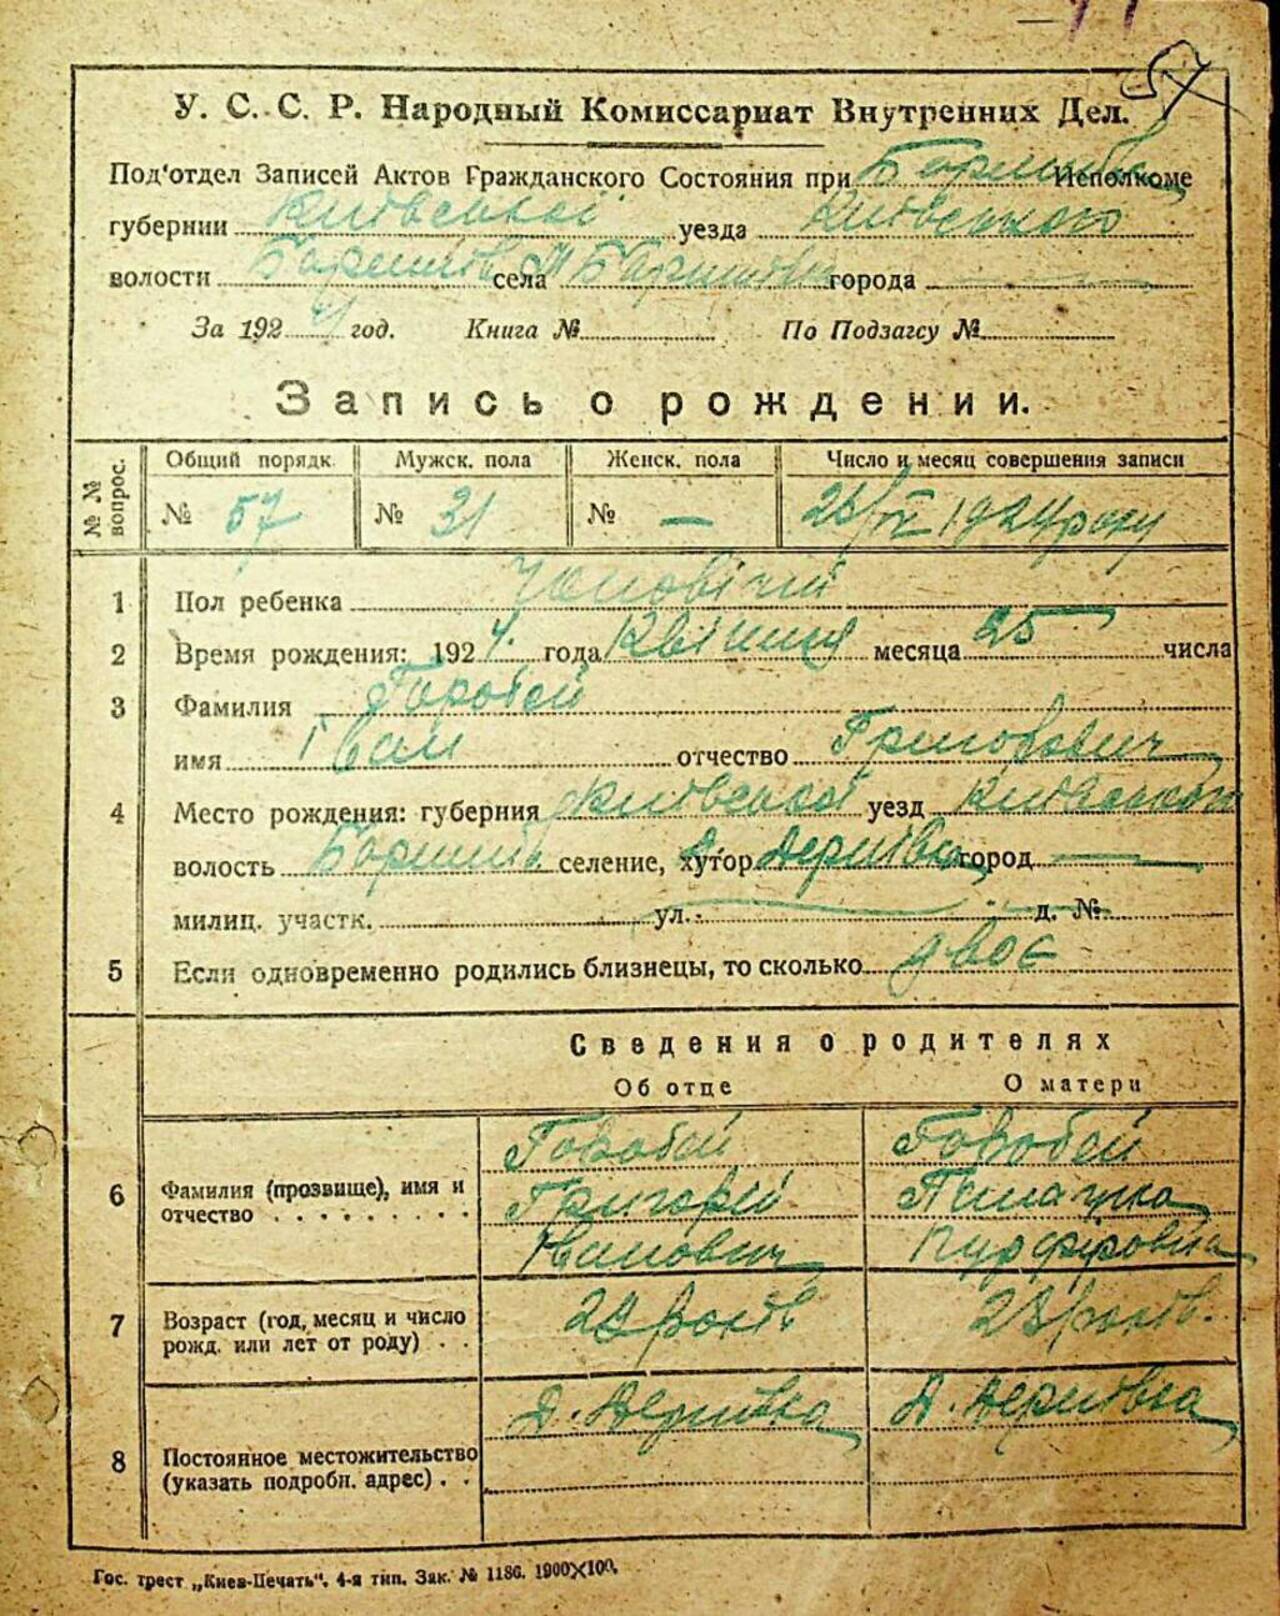 57
У. С. С. Р. Народный Комиссариат Внутренних Дел.
Под'отдел Записей Актов Гражданского Состояния при Исполкоме
губернии Київської уезда Київського
волости села города —
За 1924 год. Книга № По Подзагсу №
Запись о рождении.
№ № вопрос. Общий порядк. Мужск. пола Женск. пола Число и месяц совершения записи
№ 57 № 31 № — 1924 року
1 Пол ребенка Чоловічий
2 Время рождения: 1924 года Квітня месяца 25 числа
3 Фамилия Горобей
имя Іван отчество Григорович
4 Место рождения: губерния Київської уезд Київського
волость селение, хутор город —
милиц. участк. ул. д. №
5 Если одновременно родились близнецы, то сколько двоє
Сведения о родителях
Об отце О матери
Горобей Горобей
6 Фамилия (прозвище), имя и отчество Григорій
Іванович
7 Возраст (год, месяц и число рожд. или лет от роду) років років
8 Постоянное местожительство (указать подробн. адрес)
Гос. трест „Киев-Печать“. 4-я тип. Зак. № 1186. 1900×100.